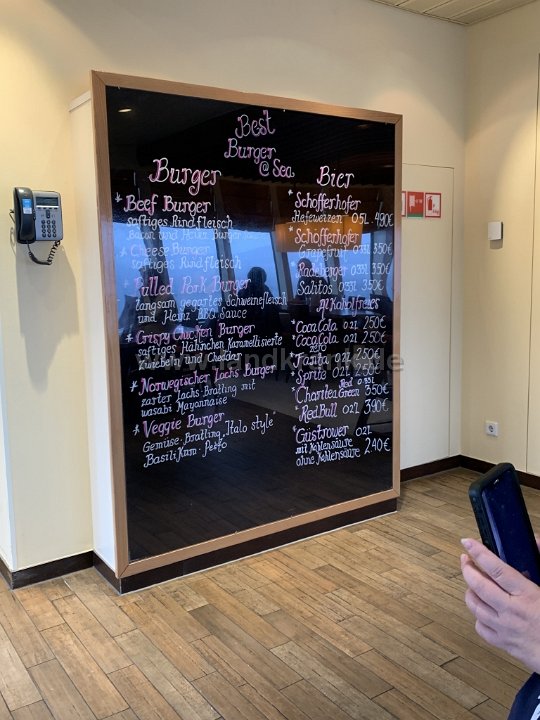 Best
Burger
@ Sea
Burger
* Beef Burger
saftiges Rindfleisch
Bacon und Heinz Burger
* Cheese Burger
saftiges Rindfleisch
* Pulled Pork Burger
langsam gegartes Schweinefleisch
und Heinz BBQ Sauce
* Crispy Chicken Burger
saftiges Hähnchen Karamellisierte
Zwiebeln und Cheddar
* Norwegischer Lachs Burger
zarter Lachs-Bratling mit
wasabi Mayonnaise
* Veggie Burger
Gemüse-Bratling "Italo style"
Basilikum-Pesto
Bier
* Schöfferhofer
Hefeweizen 0.5L 4,90€
* Schöfferhofer
Grapefruit 0.33L 3,50€
* Radeberger 0.33L 3,50€
* Salitos 0.33L 3,50€
Alkoholfreies
* Coca Cola 0.2L 2,50€
* Coca Cola zero 0.2L 2,50€
* Fanta 0.2L 2,50€
* Sprite 0.2L 2,50€
* Charitea Red Green 0.33L 3,50€
* Red Bull 0.2L 3,90€
* Güstrower 0.2L
mit Kohlensäure
ohne Kohlensäure 2,40€